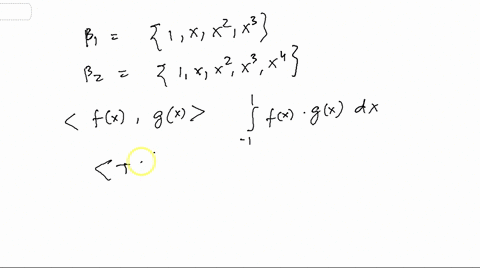 β₁ = {1, x, x², x³}
β₂ = {1, x, x², x³, x⁴}
< f(x), g(x) > ∫₋₁¹ f(x) · g(x) dx
< T